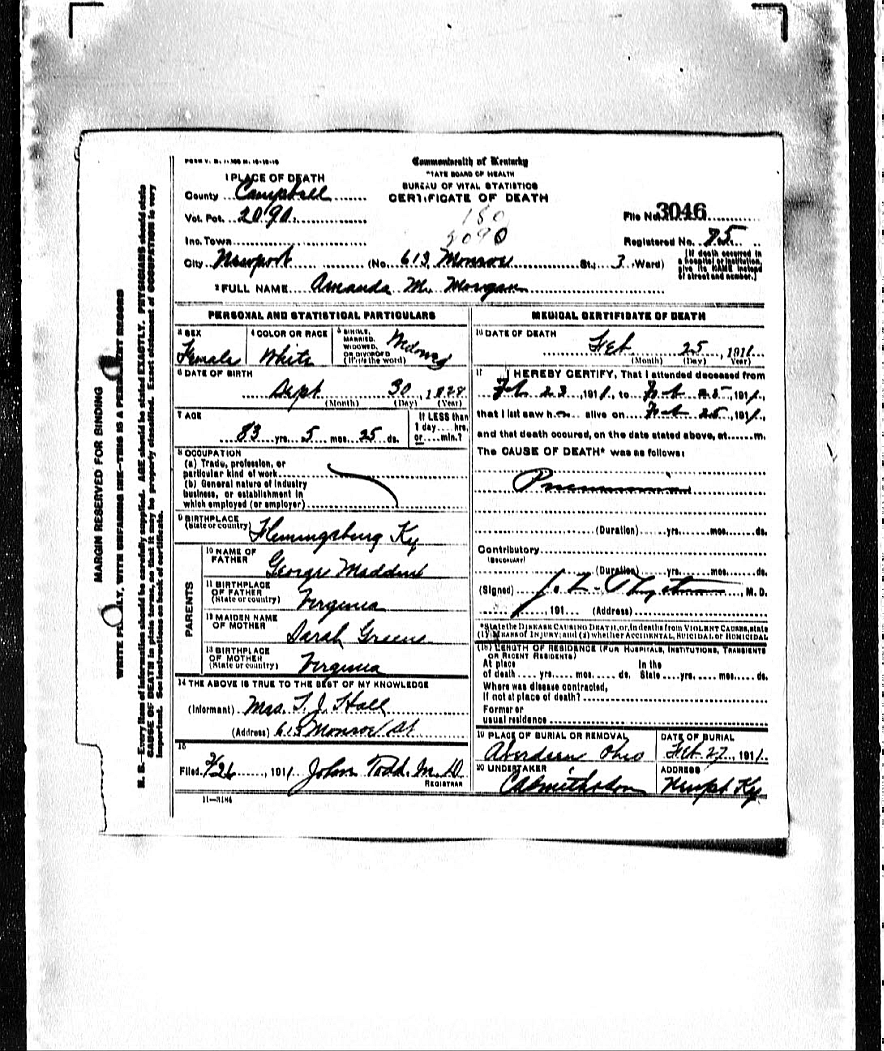 FORM V. S. 1-100 M. 10-10-10
Commonwealth of Kentucky
STATE BOARD OF HEALTH
BUREAU OF VITAL STATISTICS
CERTIFICATE OF DEATH
1 PLACE OF DEATH
County Campbell
Vot. Pct. 2090
150
2090
File No. 3046
Inc. Town
Registered No. 75
City Newport (No. 613 Monroe St.; 3 Ward)
(If death occurred in a hospital or institution, give its NAME instead of street and number.)
2 FULL NAME Amanda M. Morgan
PERSONAL AND STATISTICAL PARTICULARS
3 SEX Female
4 COLOR OR RACE White
5 SINGLE, MARRIED, WIDOWED, OR DIVORCED (Write the word) Widowed
6 DATE OF BIRTH
Sept 30, 1828
(Month) (Day) (Year)
7 AGE
83 yrs. 5 mos. 25 ds.
If LESS than 1 day... hrs. or... min.?
8 OCCUPATION
(a) Trade, profession, or particular kind of work
(b) General nature of industry business, or establishment in which employed (or employer)
9 BIRTHPLACE
(State or country) Flemingsburg Ky
PARENTS
10 NAME OF FATHER George
11 BIRTHPLACE OF FATHER
(State or country) Virginia
12 MAIDEN NAME OF MOTHER Sarah Greene
13 BIRTHPLACE OF MOTHER
(State or country) Virginia
14 THE ABOVE IS TRUE TO THE BEST OF MY KNOWLEDGE
(Informant) Mrs. T. J. Hall
(Address) 613 Monroe St
15
Filed 2/26, 1911 John Todd M.D.
REGISTRAR
11—3184
MEDICAL CERTIFICATE OF DEATH
16 DATE OF DEATH
Feb 25, 1911
(Month) (Day) Year)
17 I HEREBY CERTIFY, That I attended deceased from
Feb 23, 1911, to Feb 25, 1911,
that I last saw h alive on Feb 25, 1911,
and that death occured, on the date stated above, at m.
The CAUSE OF DEATH* was as follows:
Pneumonia
(Duration) yrs. mos. ds.
Contributory
(SECONDARY)
(Duration) yrs. mos. ds.
(Signed) J. L. M.D.
191 (Address)
*State the DISEASE CAUSING DEATH, or, in deaths from VIOLENT CAUSES, state (1) MEANS OF INJURY; and (2) whether ACCIDENTAL, SUICIDAL or HOMICIDAL
(18) LENGTH OF RESIDENCE (FOR HOSPITALS, INSTITUTIONS, TRANSIENTS OR RECENT RESIDENTS)
At place of death yrs. mos. ds. In the State yrs. mos. ds.
Where was disease contracted,
If not at place of death?
Former or
usual residence
19 PLACE OF BURIAL OR REMOVAL
Aberdeen Ohio
DATE OF BURIAL
Feb 27, 1911
20 UNDERTAKER
ADDRESS
Newpt Ky
MARGIN RESERVED FOR BINDING
WRITE PLAINLY, WITH UNFADING INK—THIS IS A PERMANENT RECORD
N. B.—Every item of information should be carefully supplied. AGE should be stated EXACTLY. PHYSICIANS should state
CAUSE OF DEATH in plain terms, so that it may be properly classified. Exact statement of OCCUPATION is very
important. See instructions on back of certificate.